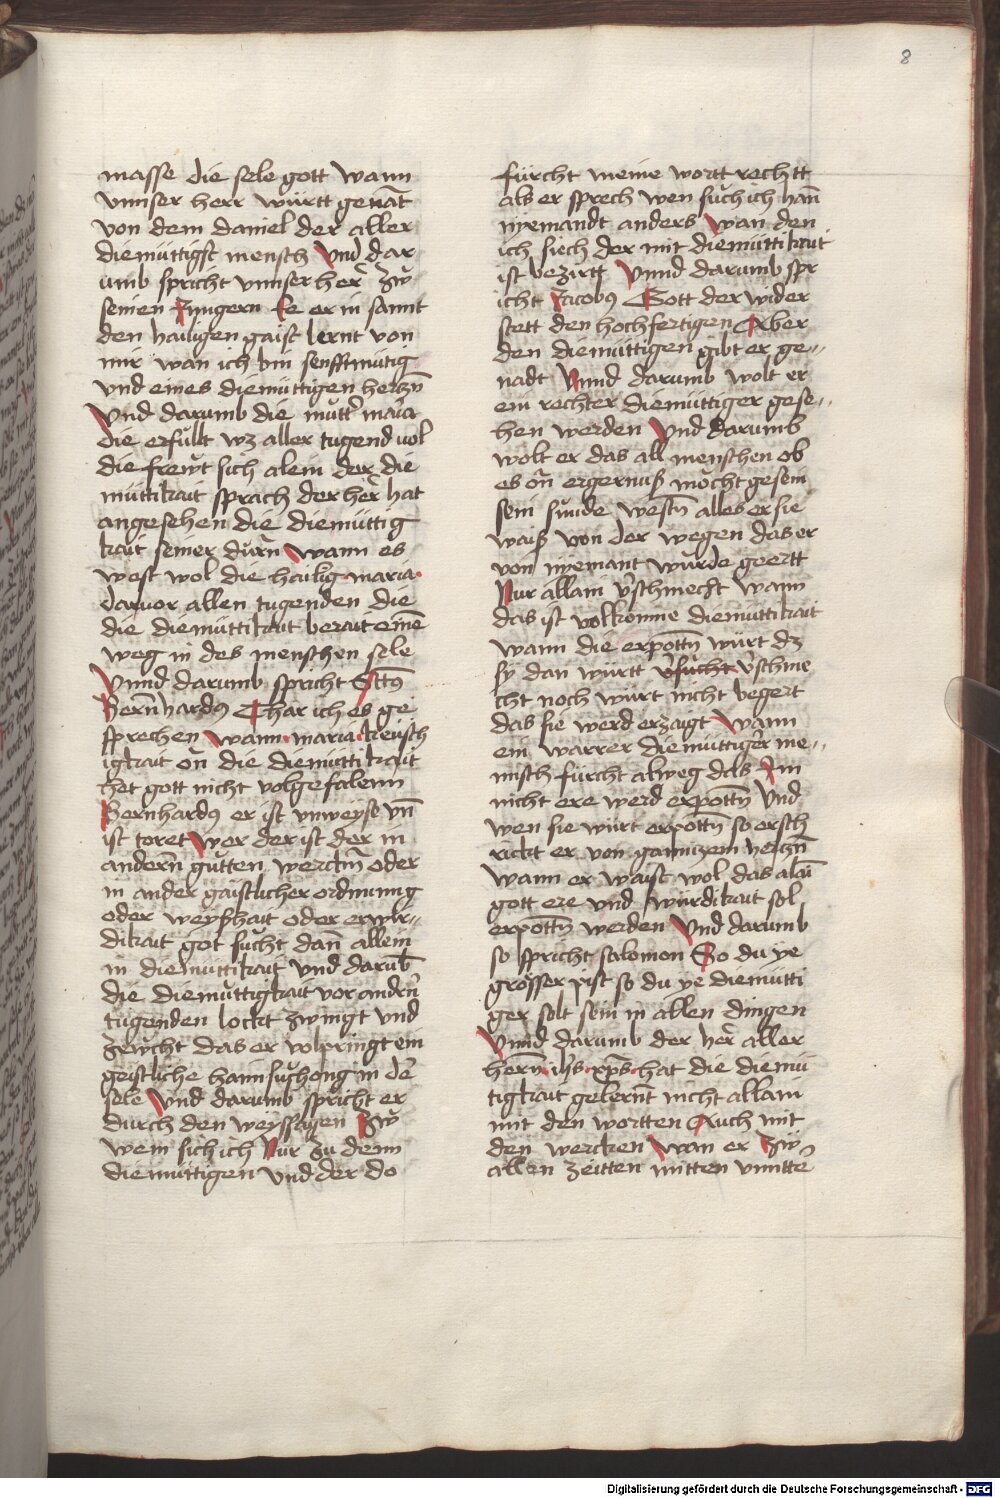 8
masse die sele gott wann
vnnser herr württ genāt
von dem daniel der aller
diemüttigst mensch Vnd dar
umb spricht vnnser her̄ zw̄
seinen Jungern Ee er in sannt
den hailigen gaist lernt von
mir wan ich bin senfftmutig
vnd eines diemüttigen herczn̄
Vnd darumb die mutt̄ maria
die erfullt wz aller tugend vol
die frewt sich alein der die
müttikait sprach der her̄ hat
angesehen die diemüttig
kait seiner durn̄ Wann es
west wol die hailig maria
daruor allen tugenden die
die diemüttikait berait eine
weg in des menschen sele
Vnnd darumb spricht Sctūs
Bern̄hardꝯ Thar ich es ge
sprechen Wann maria keusch
igkait on̄ die diemüttikait
het gott nicht volgefalenn
Bernhardꝯ er ist vnweyse vn̄
ist toret Wer der ist der in
andern̄ gutten werckn̄ oder
in ander gaistlicher ordnung
oder weyßhait oder erwir„
dikait got sucht dan̄ allein
in diemuttikait vnd darūb
die diemuttigkait vor andrn̄
tugenden lockt zwingt vnd
zeucht das er volpringt ein
geistliche haimsuchong in de
sele Vnd darumb spricht er
durch den weyssagen Zw̄
wem sich ich Nur zu denn
diemüttigen vnd der do
fürcht meine wortt rechtt
als er sprech wen such ich han̄
nyemandt anders wan den
ich siech der mit diemüttikait
ist bezirtt Vnnd darumb spr
icht Jacobꝯ Gott der wider
stett den hochfertigen Aber
den diemüttigen gibt er ge„
nadt Vnnd darumb wolt er
ein rechter diemüttiger gese„
hen werden Vnd darumb
wolt er das all menschen ob
es on̄ ergernuß möcht gesein
sein sunde westn̄ alles er sie
waiß von der wegen das er
von nyemant wurde geertt
Nur allain v̄schmecht wann
das ist volkomne diemüttikait
wann die erpottn̄ würt dz
sy dan württ v̄sucht v̄schme
cht noch würt nicht begert
das sie werd erzaigt Wann
ein warrer diemüttiger me„
nnsch fürcht alweg das Im
nicht ere werd erpottn̄ Vnd
wen sie würt erpottn̄ so ersch
rickt er von gannczem herczn̄
wann er waist wol das alain̄
gott ere vnd würdikait sol
erpottn̄ werden Vnd darumb
so spricht salomon So du ye
grösser pist so du ye diemütti
ger solt sein in allen dingen
Vnnd darumb der her̄ aller
hern̄ ih̄s xp̄s hat die diemü
tigkait gelernt nicht allain
mit den wortten Auch mit
den wercken Wan er Zw̄
allen zeitten mitten vnntte
Digitalisierung gefördert durch die Deutsche Forschungsgemeinschaft - DFG